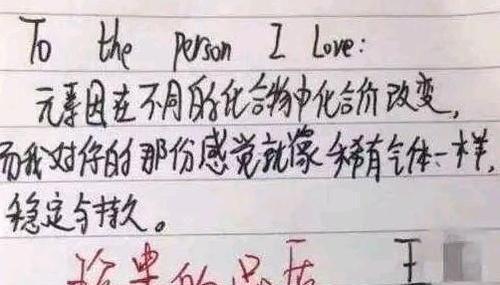 To the person I Love:
元素因在不同的化合物中化合价改变,
而我对你的那份感觉就像稀有气体一样,
稳定与持久。
的 王